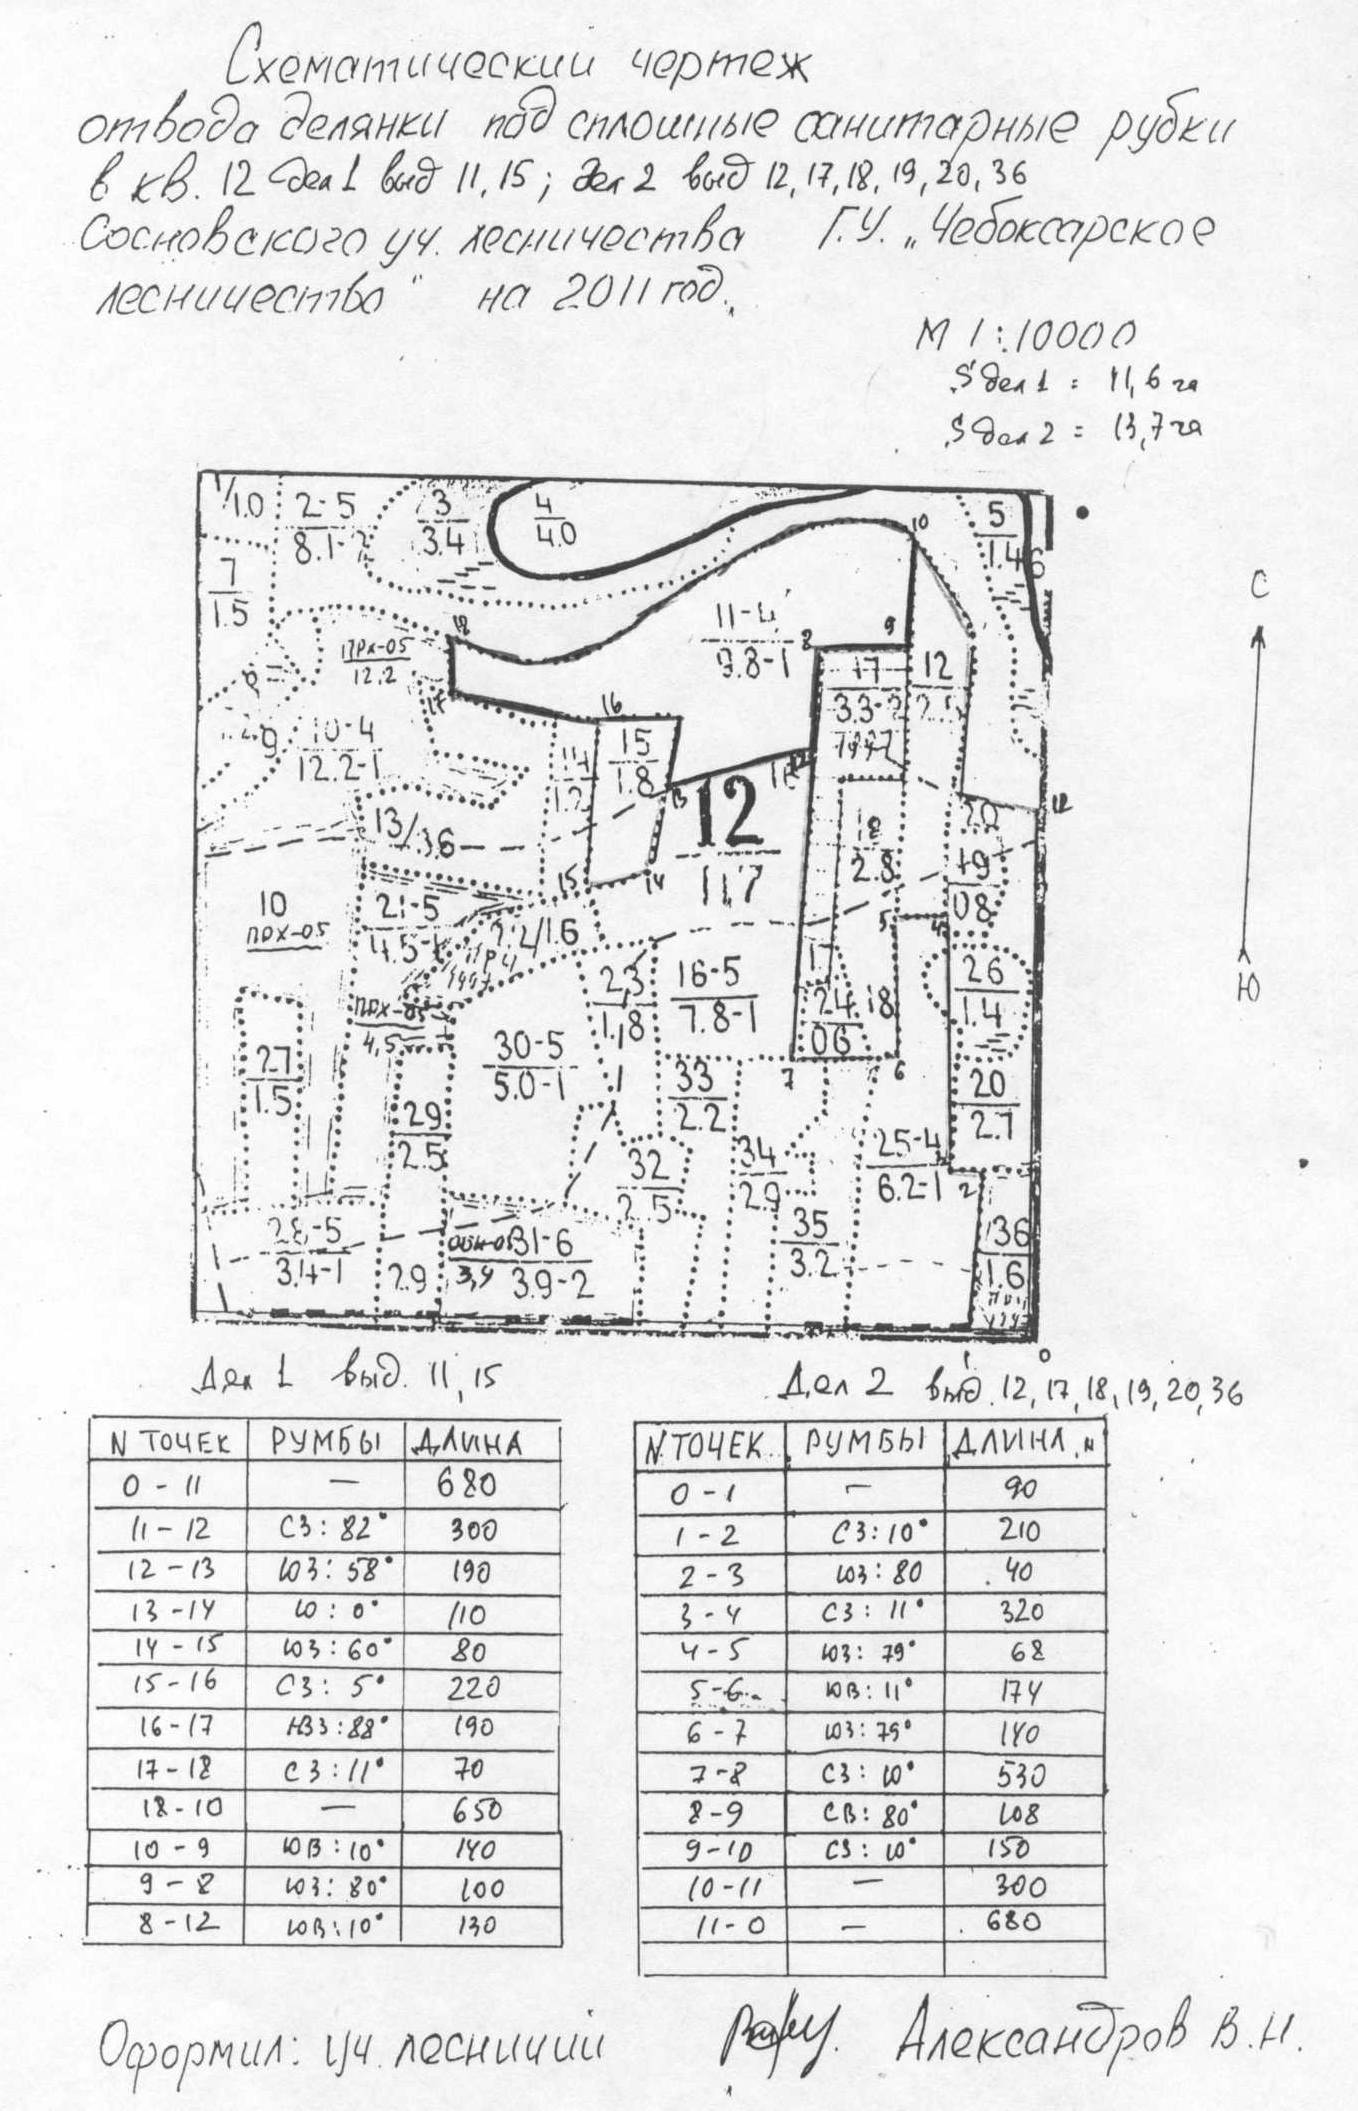 Схематический чертеж
отвода делянки под сплошные санитарные рубки
в кв. 12 дел 1 выд 11, 15; дел 2 выд 12, 17, 18, 19, 20, 36
Сосновского уч. лесничества Г.У. „Чебоксарское
лесничество" на 2011 год.
М 1:10000
S дел 1 = 11,6 га
S дел 2 = 13,7 га
1/1.0
2-5
8.1-2
3
3.4
4
4.0
5
1.4
6
7
1.5
10
18
11-4
9.8-1
8
9
ПРХ-05
12.2
17
12
17
3.3-2
1997
10-4
12.2-1
16
15
1.8
14
1.2
13
11
12
12
11,7
13/3.6
15
14
18
2.8
20
19
08
5
4
10
ПРХ-05
21-5
4.5-1
22/1.6
23
1,8
16-5
7.8-1
24
06
18
26
1.4
ПРХ-05
4,5
30-5
5.0-1
27
1.5
29
2.5
33
2.2
7
6
20
2.7
32
2.5
34
2.9
25-4
6.2-1
3
2
28-5
3.4-1
29
31-6
3,9
3.9-2
35
3.2
36
1.6
1
0
С
Ю
Дел 1 выд. 11, 15
Дел 2 выд. 12, 17, 18, 19, 20, 36
N ТОЧЕК РУМБЫ ДЛИНА
0 - 11 — 680
11 - 12 СЗ: 82° 300
12 - 13 ЮЗ: 58° 190
13 - 14 Ю: 0° 110
14 - 15 ЮЗ: 60° 80
15 - 16 СЗ: 5° 220
16 - 17 88° 190
17 - 18 СЗ: 11° 70
18 - 10 — 650
10 - 9 ЮВ: 10° 140
9 - 8 ЮЗ: 80° 100
8 - 12 ЮВ: 10° 130
N ТОЧЕК РУМБЫ ДЛИНА, м
0 - 1 — 90
1 - 2 СЗ: 10° 210
2 - 3 ЮЗ: 80 40
3 - 4 СЗ: 11° 320
4 - 5 ЮЗ: 79° 68
5 - 6 ЮВ: 11° 174
6 - 7 ЮЗ: 79° 140
7 - 8 СЗ: 10° 530
8 - 9 СВ: 80° 108
9 - 10 СЗ: 10° 150
10 - 11 — 300
11 - 0 — 680
Оформил: уч. лесничий Александров В.Н.